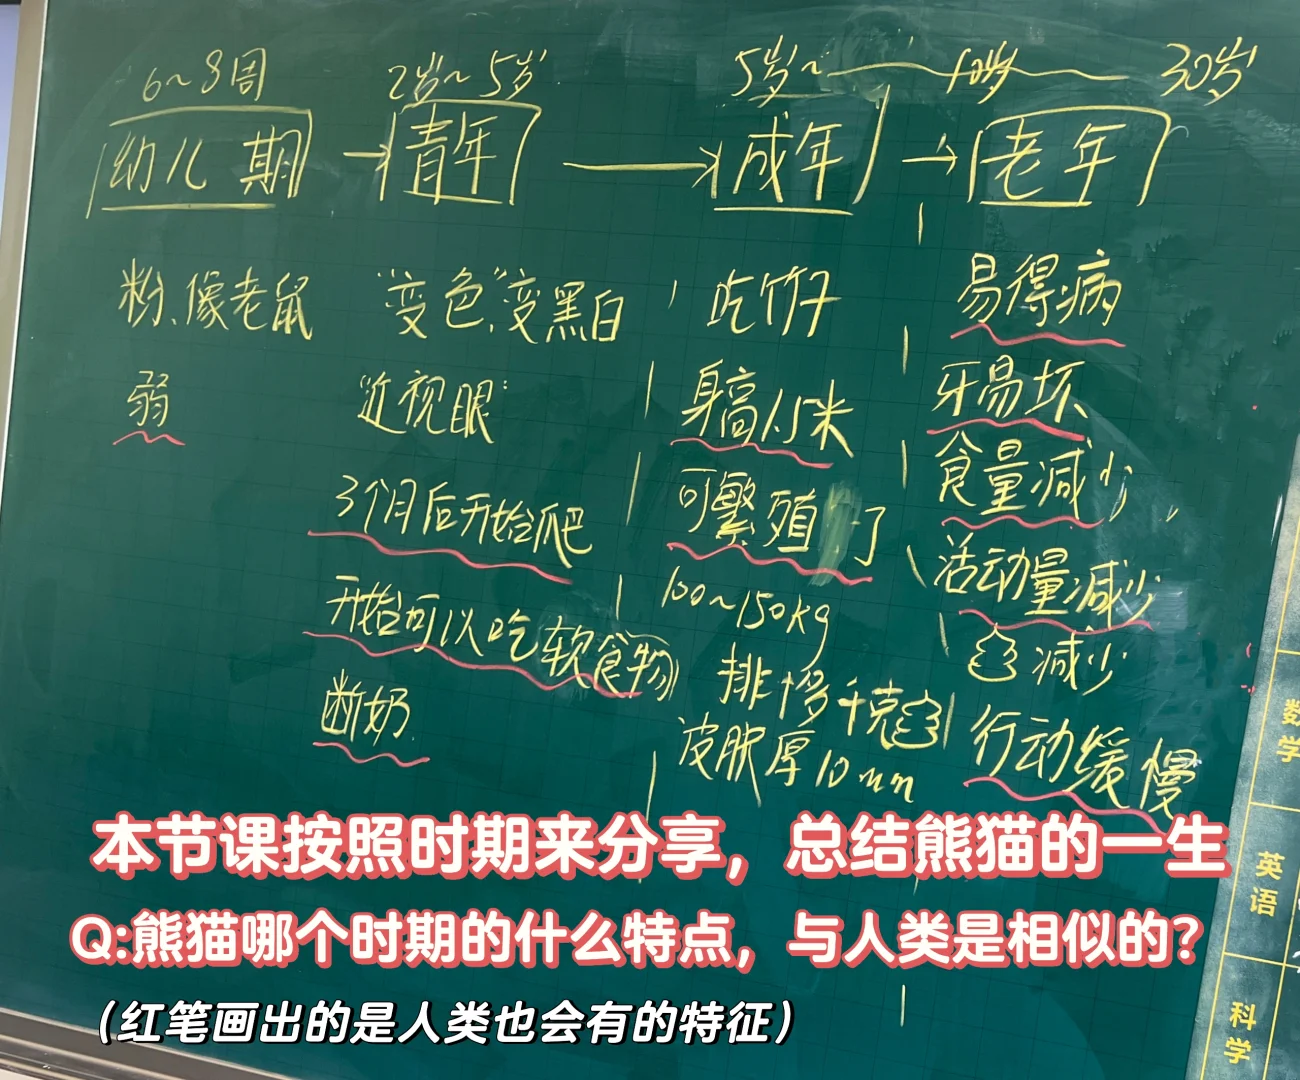 6~8周 2岁~5岁 5岁~ 10岁 30岁
幼儿期 青年 成年 老年
粉、像老鼠
弱
"变色",变黑白
"近视眼"
3个月后开始爬
开始可以吃软食物
断奶
吃竹子
身高1.5米
可繁殖了
100~150kg
排 多千克
皮肤厚10mm
易得病
牙易坏
食量减少,
活动量减少
减少
行动缓慢
数学
英语
科学
本节课按照时期来分享，总结熊猫的一生
Q:熊猫哪个时期的什么特点，与人类是相似的？
（红笔画出的是人类也会有的特征）